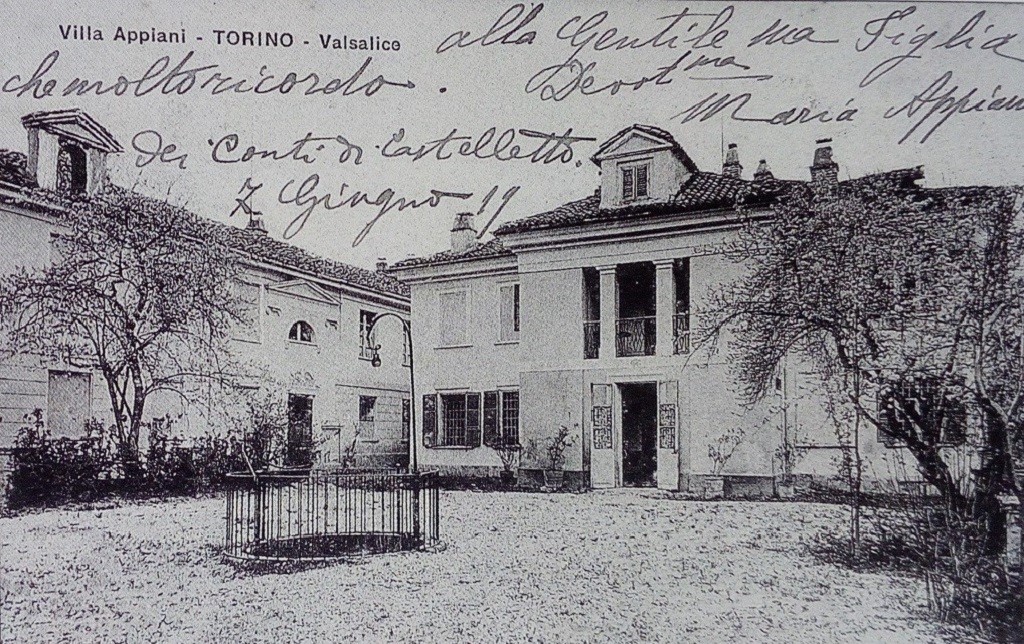 Villa Appiani - TORINO - Valsalice
alla Gentile ma Figlia
che molto ricordo.
Devot.ma
Maria Appiani
dei Conti di Castelletto.
7 Giugno 19